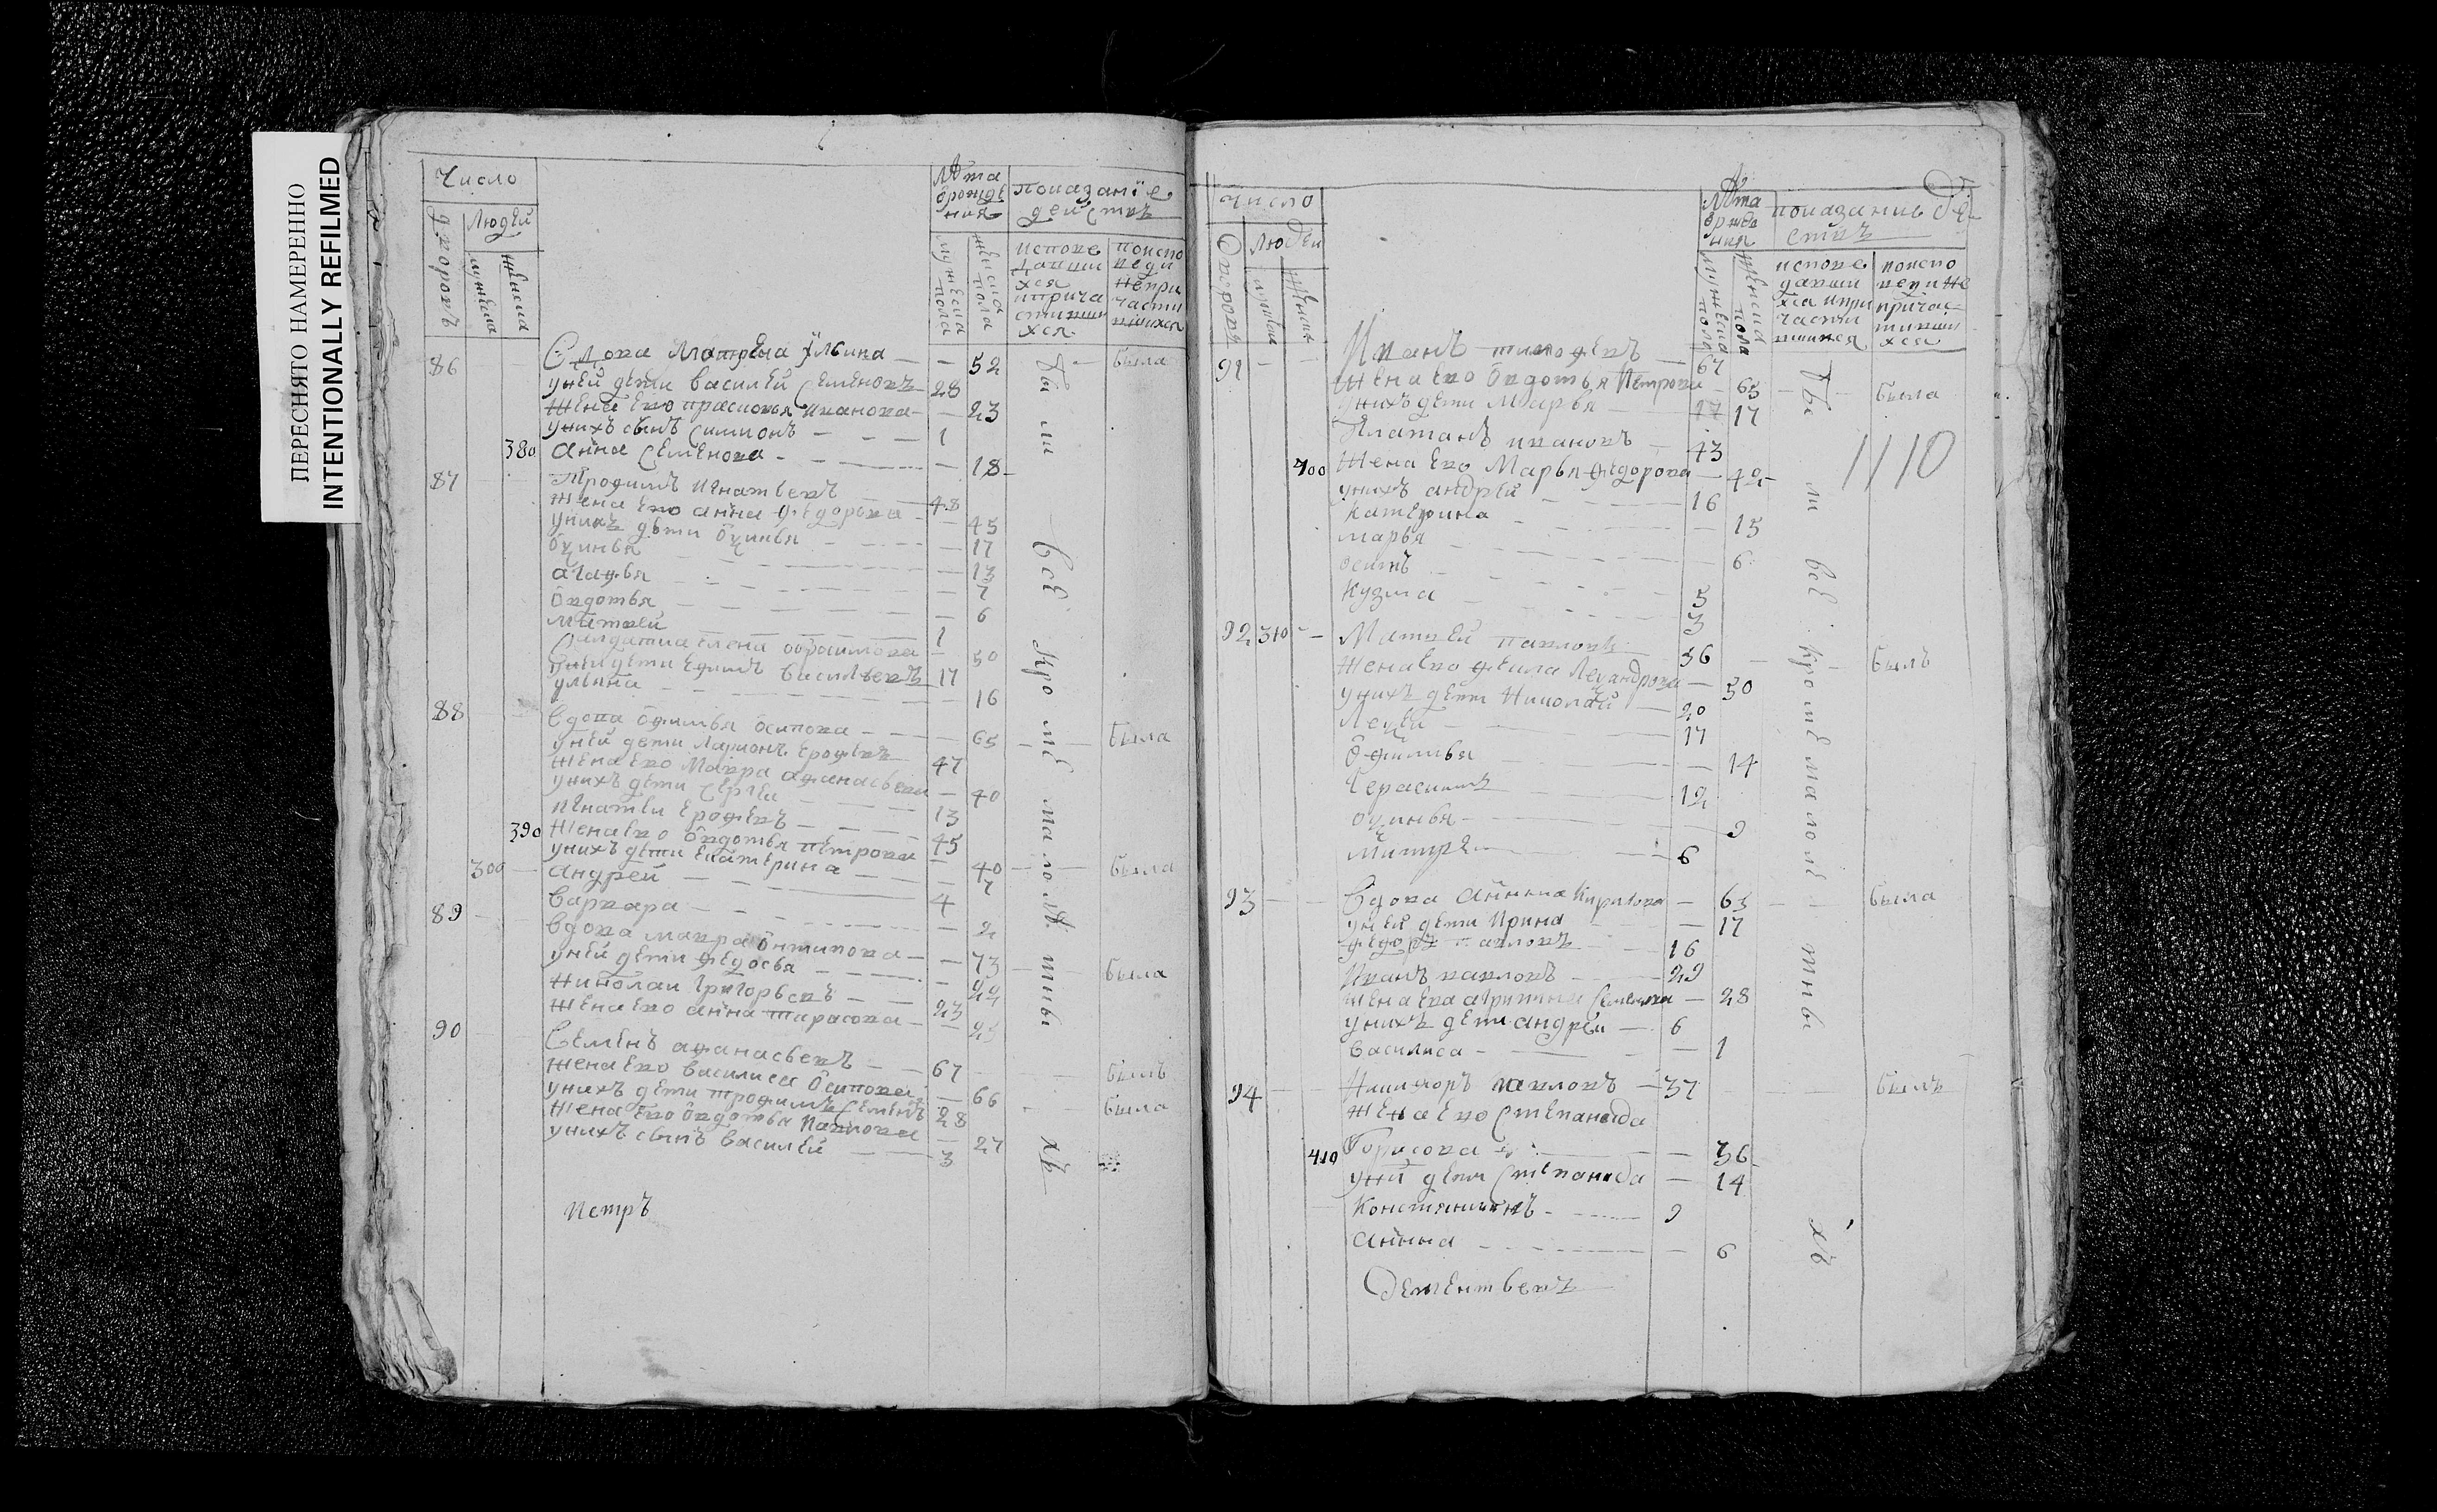 ПЕРЕСНЯТО НАМЕРЕННО
INTENTIONALLY REFILMED
Число
дворовъ
Людей
мужеска
женска
Лѣта
ѿ рожде
ния
мужеска пола
женска пола
показанїе
действъ
испове
давши
хся
иприча
стивши
хся
поиспо
веди
непри
части
вшихся
86 Вдова Матрена Ульина 52 была
уней дети василей Семеновъ 28
жена ево прасковья иванова 23
унихъ сынъ Симионъ 1
380 анна Семенова 18
87 Трофимъ игнатьевъ 48
жена ево анна федорова 45
унихъ дети Ѡксинья 17
Ѡксинья 13
агафья 7
Ѡвдотья 6
матвей 1
Салдатка елена обраимова 50
уней дети ефимъ васильевъ 17
ульяна 16
88 вдова Ѡфимья осипова 65 была
уней дети Ларионъ Ерофеевъ 47
жена ево Мавра афанасьева 40
унихъ дети Сергеи 13
игнатеи Ерофевъ 45
390 жена ево Ѡвдотья петрова 40 была
унихъ дети Екатерина 7
300 андрей 4
варвара 2
89 вдова мавра Ѡнтипова 73 была
уней дети федосья 22
николаи григорьевъ 23
жена ево анна тарасова 23
90 Семенъ афанасьевъ 67 былъ
жена ево василиса Осипова 66 была
унихъ дети трофимъ Семенъ 28
жена ево Ѡвдотья павлова 27
унихъ сынъ василей 3
бы ли все кроме малолѣтныхъ
петръ
Число
Дворовъ
Людей
мужеска
женска
Лѣта
ѿ рожде
ния
мужеска пола
женска пола
показание де
ствъ
испове
давши
хся ипри
части
вшихся
поиспо
веди не
причас
тивши
хся
91 Иванъ тимофевъ 67
жена ево Ѡвдотья петрова 65 была
унихъ дети Марья 17
Платанъ ивановъ 43
1110
400 жена ево Марья федорова 42
унихъ андрей 16
катерина 15
марья 6
осипъ 5
кузма 3
92 310 Матвей павловъ 56 былъ
жена ево фекла Лександрова 50
унихъ дети Николай 20
Лексей 17
Ѡфимья 14
Герасимъ 12
оксинья 9
митрей 6
93 Вдова анна кирилова 63 была
уней дети Ирина 17
федоръ павловъ 16
Иванъ павловъ 29
жена ева агрипина Семенова 28
унихъ дети андреи 6
василиса 1
94 Никифоръ павловъ 37 былъ
жена ево Степанида
410 Борисова 36
уни дети Степанида 14
Констянтинъ 9
анна 6
бы ли все кроме малолетныхъ
Дементьевъ